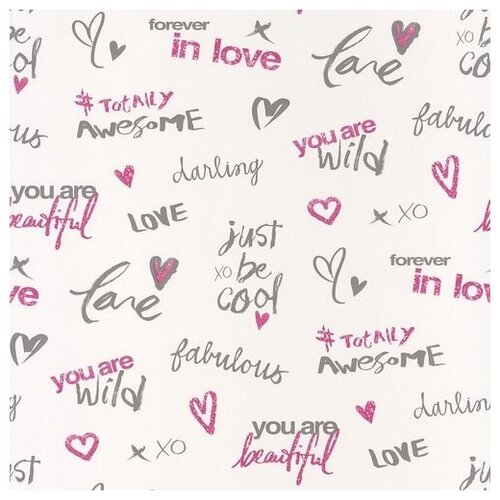 forever
in love
love
xo be
cool
#TotAlly
AwesoME
fabulous
you are
wild
darling
you are
beautiful
LOVE
just
xo be
cool
x XO
forever
in love
love
#TotAlly
AwesoME
fabulous
you are
wild
darling
you are
beautiful
LOVE
x XO
just